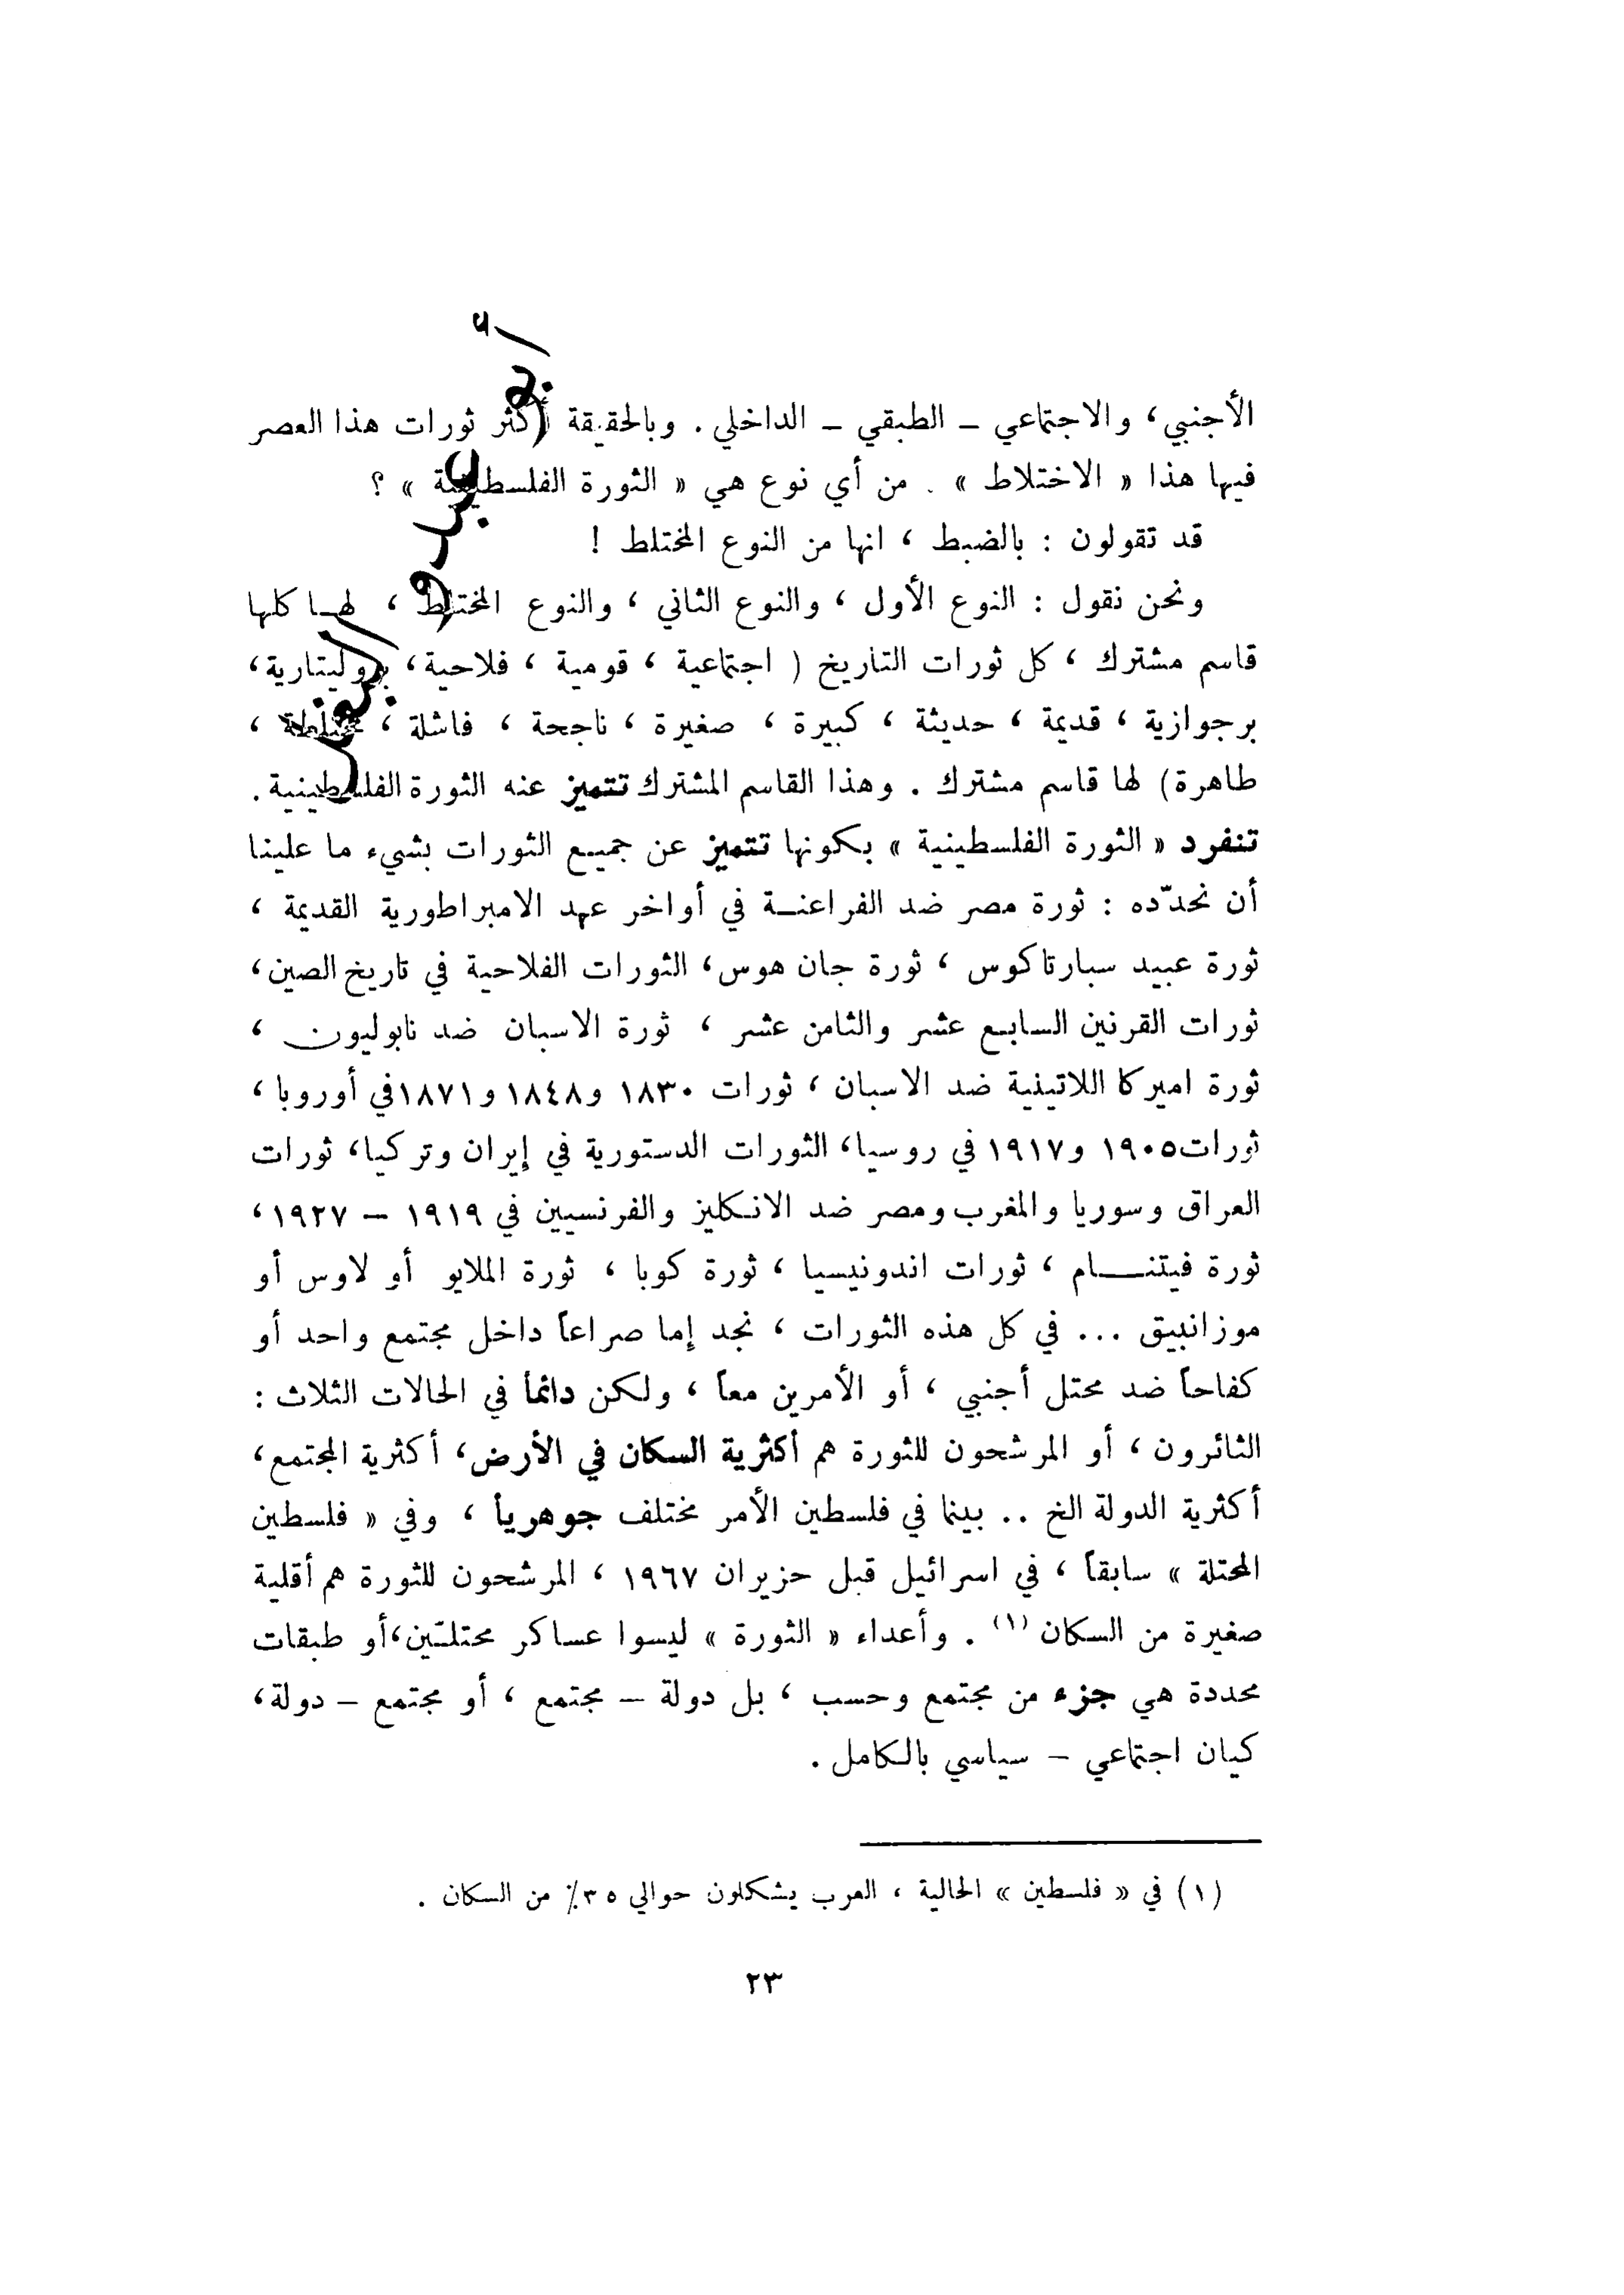 الأجنبي، والاجتماعي – الطبقي – الداخلي . وبالحقيقة أكثر ثورات هذا العصر
فيها هذا « الاختلاط » . من أي نوع هي « الثورة الفلسطينية » ؟
قد تقولون : بالضبط ، انها من النوع المختلط !
ونحن نقول : النوع الأول ، والنوع الثاني ، والنوع المختلط ، لهـا كلها
قاسم مشترك ، كل ثورات التاريخ ( اجتماعية ، قومية ، فلاحية، بروليتارية،
برجوازية ، قديمة ، حديثة ، كبيرة ، صغيرة ، ناجحة ، فاشلة ، مختلطة ،
طاهرة) لها قاسم مشترك . وهذا القاسم المشترك تتميز عنه الثورة الفلسطينية .
تنفرد « الثورة الفلسطينية » بكونها تتميز عن جميع الثورات بشيء ما علينا
أن نحدّده : ثورة مصر ضد الفراعنـة في أواخر عهد الامبراطورية القديمة ،
ثورة عبيد سبارتاكوس ، ثورة جان هوس، الثورات الفلاحية في تاريخ الصين،
ثورات القرنين السابع عشر والثامن عشر ، ثورة الاسبان ضد نابوليون ،
ثورة اميركا اللاتينية ضد الاسبان ، ثورات ١٨٣٠ و١٨٤٨ و١٨٧١في أوروبا ،
ثورات١٩٠٥ و١٩١٧ في روسيا، الثورات الدستورية في إيران وتركيا، ثورات
العراق وسوريا والمغرب ومصر ضد الانكليز والفرنسيين في ١٩١٩ – ١٩٢٧،
ثورة فيتنـــام ، ثورات اندونيسيا ، ثورة كوبا ، ثورة الملايو أو لاوس أو
موزانبيق ... في كل هذه الثورات ، نجد إما صراعاً داخل مجتمع واحد أو
كفاحاً ضد محتل أجنبي ، أو الأمرين معاً ، ولكن دائماً في الحالات الثلاث :
الثائرون ، أو المرشحون للثورة هم أكثرية السكان في الأرض، أكثرية المجتمع،
أكثرية الدولة الخ .. بينما في فلسطين الأمر مختلف جوهرياً ، وفي « فلسطين
المحتلة » سابقاً ، في اسرائيل قبل حزيران ١٩٦٧ ، المرشحون للثورة هم أقلية
صغيرة من السكان (١) . وأعداء « الثورة » ليسوا عساكر محتلّين،أو طبقات
محددة هي جزء من مجتمع وحسب ، بل دولة – مجتمع ، أو مجتمع – دولة،
كيان اجتماعي – سياسي بالكامل .
(١) في « فلسطين » الحالية ، العرب يشكلون حوالي ٣٥٪ من السكان .
٢٣